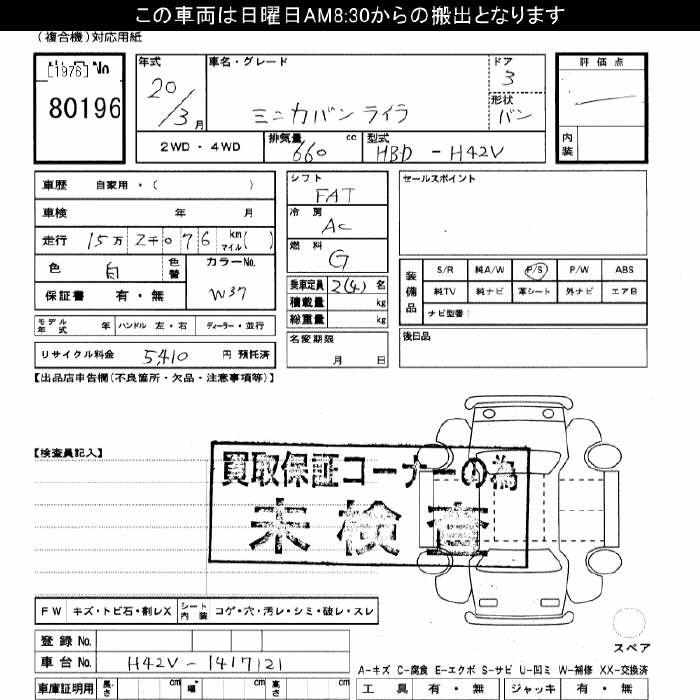 この車両は日曜日AM8:30からの搬出となります
(複合機)対応用紙
[1976] No
80196
年式 20/3 月
車名・グレード
ミニカバン ライラ
ドア 3
形状 バン
評価点
内装
2WD・4WD
排気量 660 cc
型式 HBD - H42V
車歴 自家用・( )
車検 年 月
走行 15万 2千076 km マイル( )
色 白 色替
カラーNo. W37
保証書 有・無
モデル年式 年 ハンドル 左・右 ディーラー・並行
リサイクル料金 5,410 円 預託済
シフト FAT
冷房 AC
燃料 G
乗車定員 2(4) 名
積載量 kg
総重量 kg
名変期限 月 日
セールスポイント
装備品
S/R 純A/W P/S P/W ABS
純TV 純ナビ 革シート 外ナビ エアB
ナビ型番:
後日品
【出品店申告欄(不良箇所・欠品・注意事項等)】
【検査員記入】
買取保証コーナーの為
未検査
FW キズ・トビ石・割レX シート内装 コゲ・穴・汚レ・シミ・破レ・スレ
スペア
登録No.
車台No. H42V-1417121
A-キズ C-腐食 E-エクボ S-サビ U-凹ミ W-補修 XX-交換済
車庫証明用 長さ cm 幅 cm 高さ cm
工具 有・無 ジャッキ 有・無